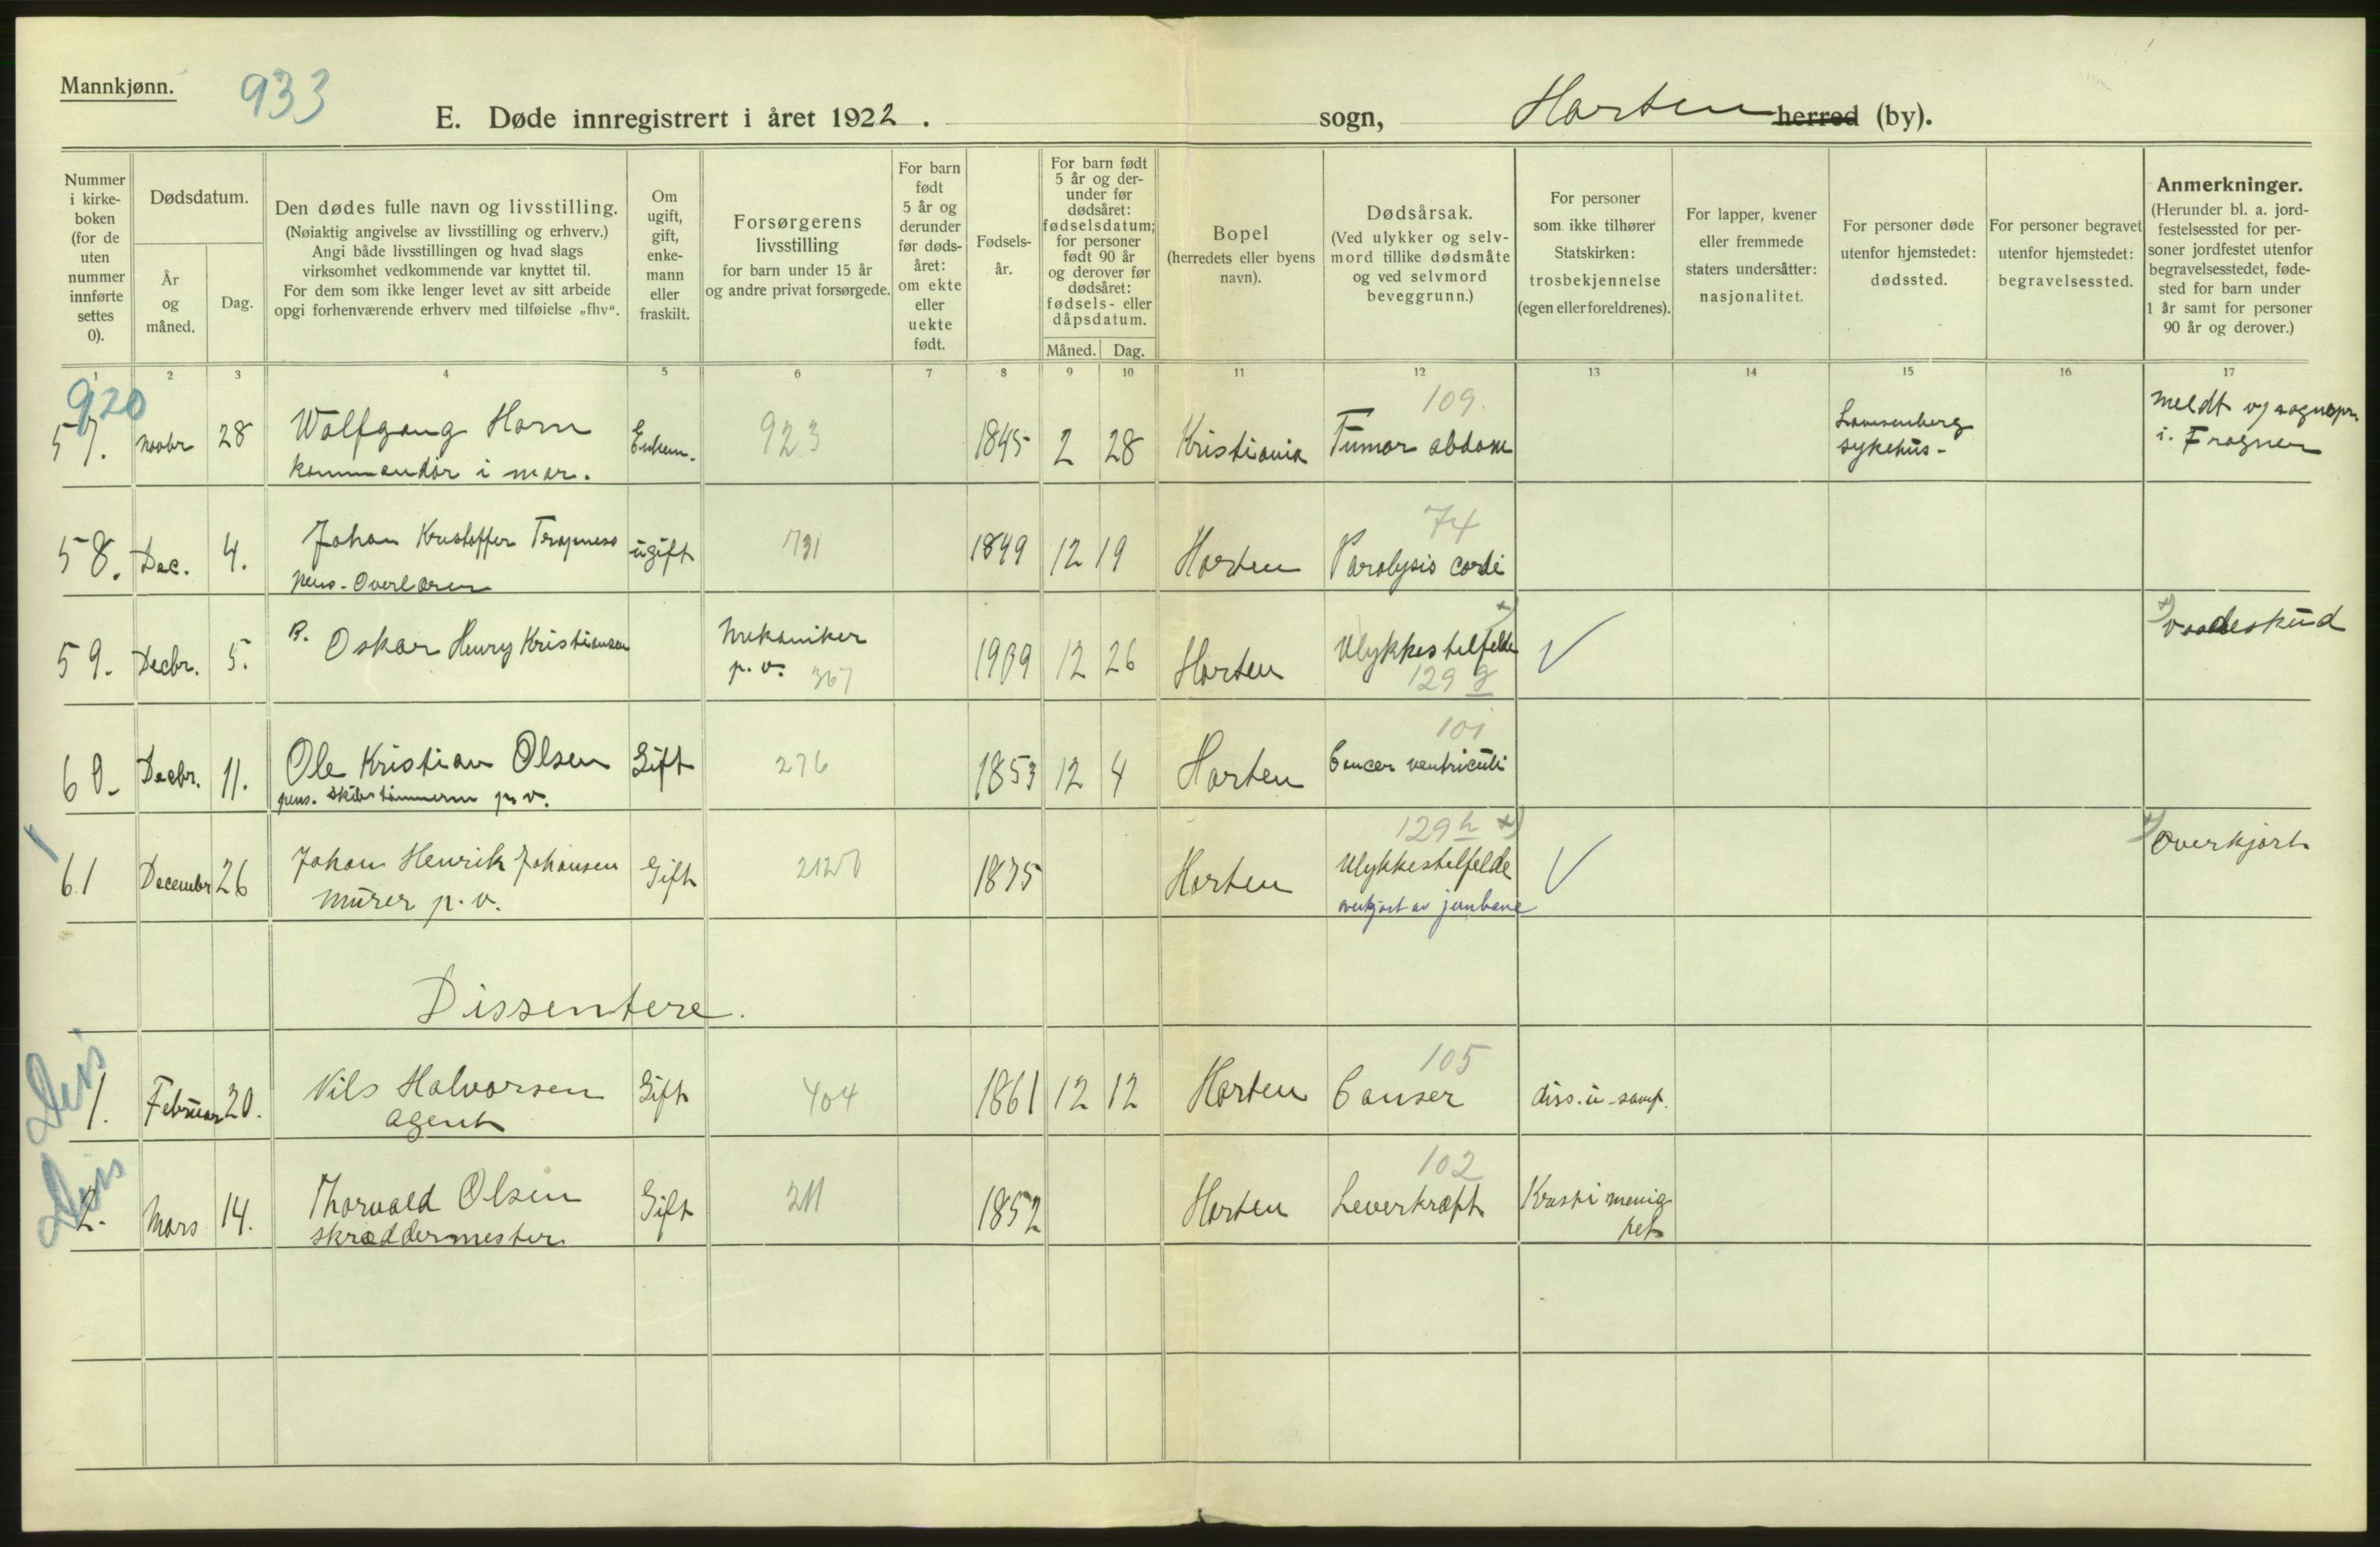 Mannkjønn.
933
E. Døde innregistrert i året 1922. sogn, Horten herred (by).
Nummer i kirke-boken (for de uten nummer innførte settes 0).
Dødsdatum.
År og måned.
Dag.
Den dødes fulle navn og livsstilling.
(Nøiaktig angivelse av livsstilling og erhverv.)
Angi både livsstillingen og hvad slags
virksomhet vedkommende var knyttet til.
For dem som ikke lenger levet av sitt arbeide
opgi forhenværende erhverv med tilføielse „fhv“.
Om ugift, gift, enke-mann eller fraskilt.
Forsørgerens
livsstilling
for barn under 15 år
og andre privat forsørgede.
For barn født 5 år og derunder før døds-året: om ekte eller uekte født.
Fødsels-år.
For barn født 5 år og der-under før dødsåret: fødselsdatum; for personer født 90 år og derover før dødsåret: fødsels- eller dåpsdatum.
Måned. Dag.
Bopel
(herredets eller byens
navn).
Dødsårsak.
(Ved ulykker og selv-
mord tillike dødsmåte
og ved selvmord
beveggrunn.)
For personer
som ikke tilhører
Statskirken:
trosbekjennelse
(egen eller foreldrenes).
For lapper, kvener
eller fremmede
staters undersåtter:
nasjonalitet.
For personer døde
utenfor hjemstedet:
dødssted.
For personer begravet
utenfor hjemstedet:
begravelsessted.
Anmerkninger.
(Herunder bl. a. jord-
festelsessted for per-
soner jordfestet utenfor
begravelsesstedet, føde-
sted for barn under
1 år samt for personer
90 år og derover.)
1 2 3 4 5 6 7 8 9 10 11 12 13 14 15 16 17
920
57. Novbr 28 Wolfgang Horn Enkem. 923 1845 2 28 Kristiania 109 Tumor abdom sykehus- meldt v/ sognepr.
kommandör i mar. i. Frogner
58. Dec. 4. Johan Kristoffer ugift 731 1849 12 19 Horten 74 Paralysis cordi
pens. Overlærer
59. Decbr. 5. Oskar Henry Kristiansen Mekaniker 1909 12 26 Horten Ulykkestilfelde x) x) Vaadeskud
p. v. 367 129 g
60- Decbr. 11. Ole Kristian Olsen Gift 276 1853 12 4 Horten 101 Cancer ventriculi
pens. skibstömmerm p. v.
61 December 26 Johan Henrik Johansen Gift 2120 1875 Horten 129 h x) Ulykkestilfelde x) Overkjørt
murer p. v. overkjørt av jernbane
Dissentere.
Dis
1. Februar 20. Nils Halvorsen Gift 404 1861 12 12 Horten 105 Canser diss. u. samf.
agent
Dis
2. Mars 14. Thorvald Olsen Gift 211 1852 Horten 102 Leverkræft menig
skræddermester het